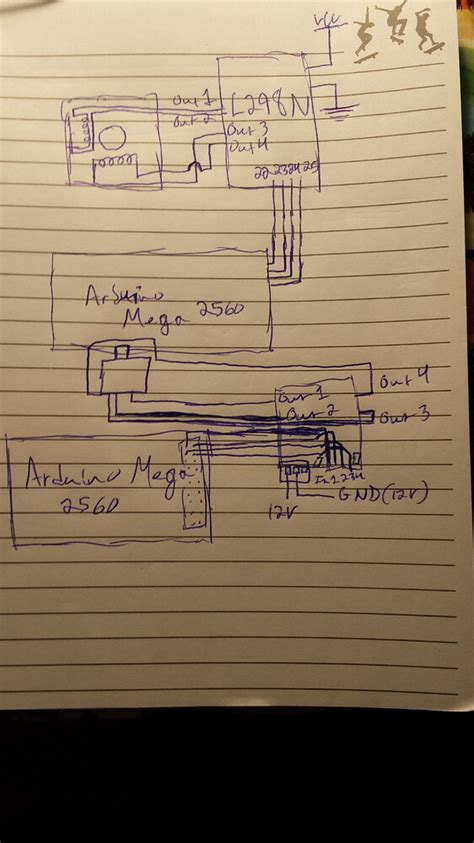 Vcc
Out 1
Out 2
L298N
Out 3
Out 4
22 23 24 25
Arduino
Mega 2560
Out 1
Out 4
Out 2
Out 3
Arduino Mega
2560
In 1 2 3 4
GND (12V)
12V